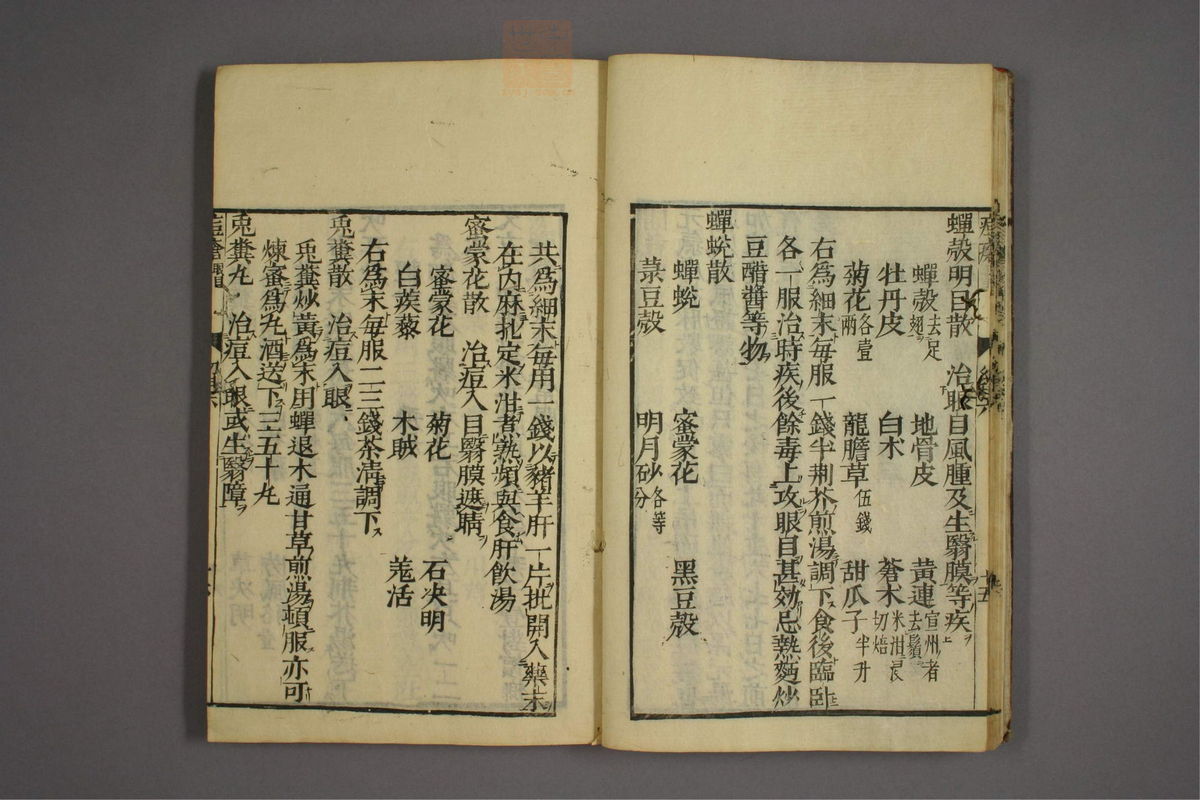 蟬殼明目散 治眼目風腫及生翳膜等疾
蟬殼去足翅 地骨皮 黃連宣州者去鬚
牡丹皮 白朮 蒼朮米泔浸切焙
菊花各壹兩 龍膽草伍錢 甜瓜子半升
右為細末每服一錢半荆芥煎湯調下食後臨臥
各一服治時疾後餘毒上攻眼目甚効忌熱麵炒
豆醋醬等物
蟬蛻散
蟬蛻 蜜蒙花 黑豆殼
菉豆殼 明月砂各等分
共為細末每用一錢以豬羊肝一片批開入藥末
在內麻扎定米泔煮熟頻與食肝飲湯
蜜蒙花散 治痘入目翳膜遮睛
蜜蒙花 菊花 石决明
白蒺藜 木賊 羗活
右為末每服二三錢茶清調下
兎糞散 治痘入眼
兎糞炒黃為末用蟬退木通甘草煎湯頓服亦可
煉蜜為丸酒送下三五十丸
兎糞丸 治痘入眼或生翳障